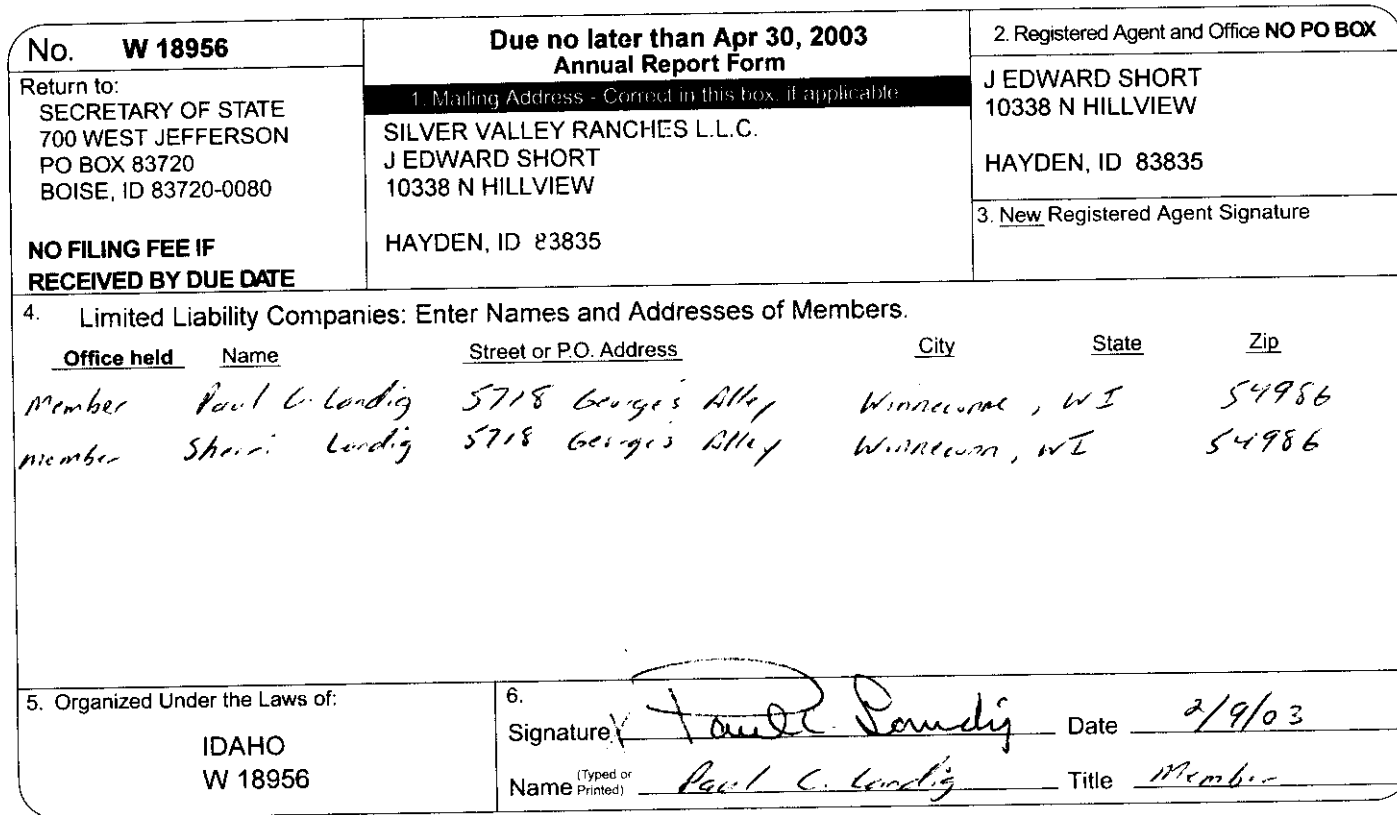 No. W 18956
Return to:
SECRETARY OF STATE
700 WEST JEFFERSON
PO BOX 83720
BOISE, ID 83720-0080
NO FILING FEE IF
RECEIVED BY DUE DATE
Due no later than Apr 30, 2003
Annual Report Form
1. Mailing Address - Correct in this box, if applicable
SILVER VALLEY RANCHES L.L.C.
J EDWARD SHORT
10338 N HILLVIEW
HAYDEN, ID 83835
2. Registered Agent and Office NO PO BOX
J EDWARD SHORT
10338 N HILLVIEW
HAYDEN, ID 83835
3. New Registered Agent Signature
4. Limited Liability Companies: Enter Names and Addresses of Members.
Office held Name Street or P.O. Address City State Zip
Member Paul C. Landig 5718 George's Alley Winneconne, WI 54986
member Sherri Landig 5718 George's Alley Winneconn, WI 54986
5. Organized Under the Laws of:
IDAHO
W 18956
6.
Signature X Paul C. Landig Date 2/9/03
Name (Typed or Printed) Paul C. Landig Title Member